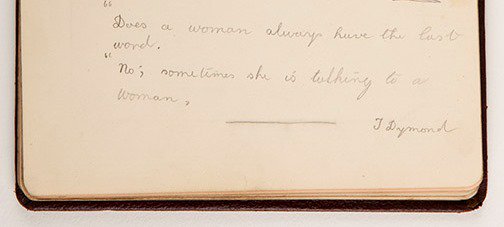 "
Does a woman always have the last
word.
"
No; sometimes she is talking to a
woman,
J Dymond